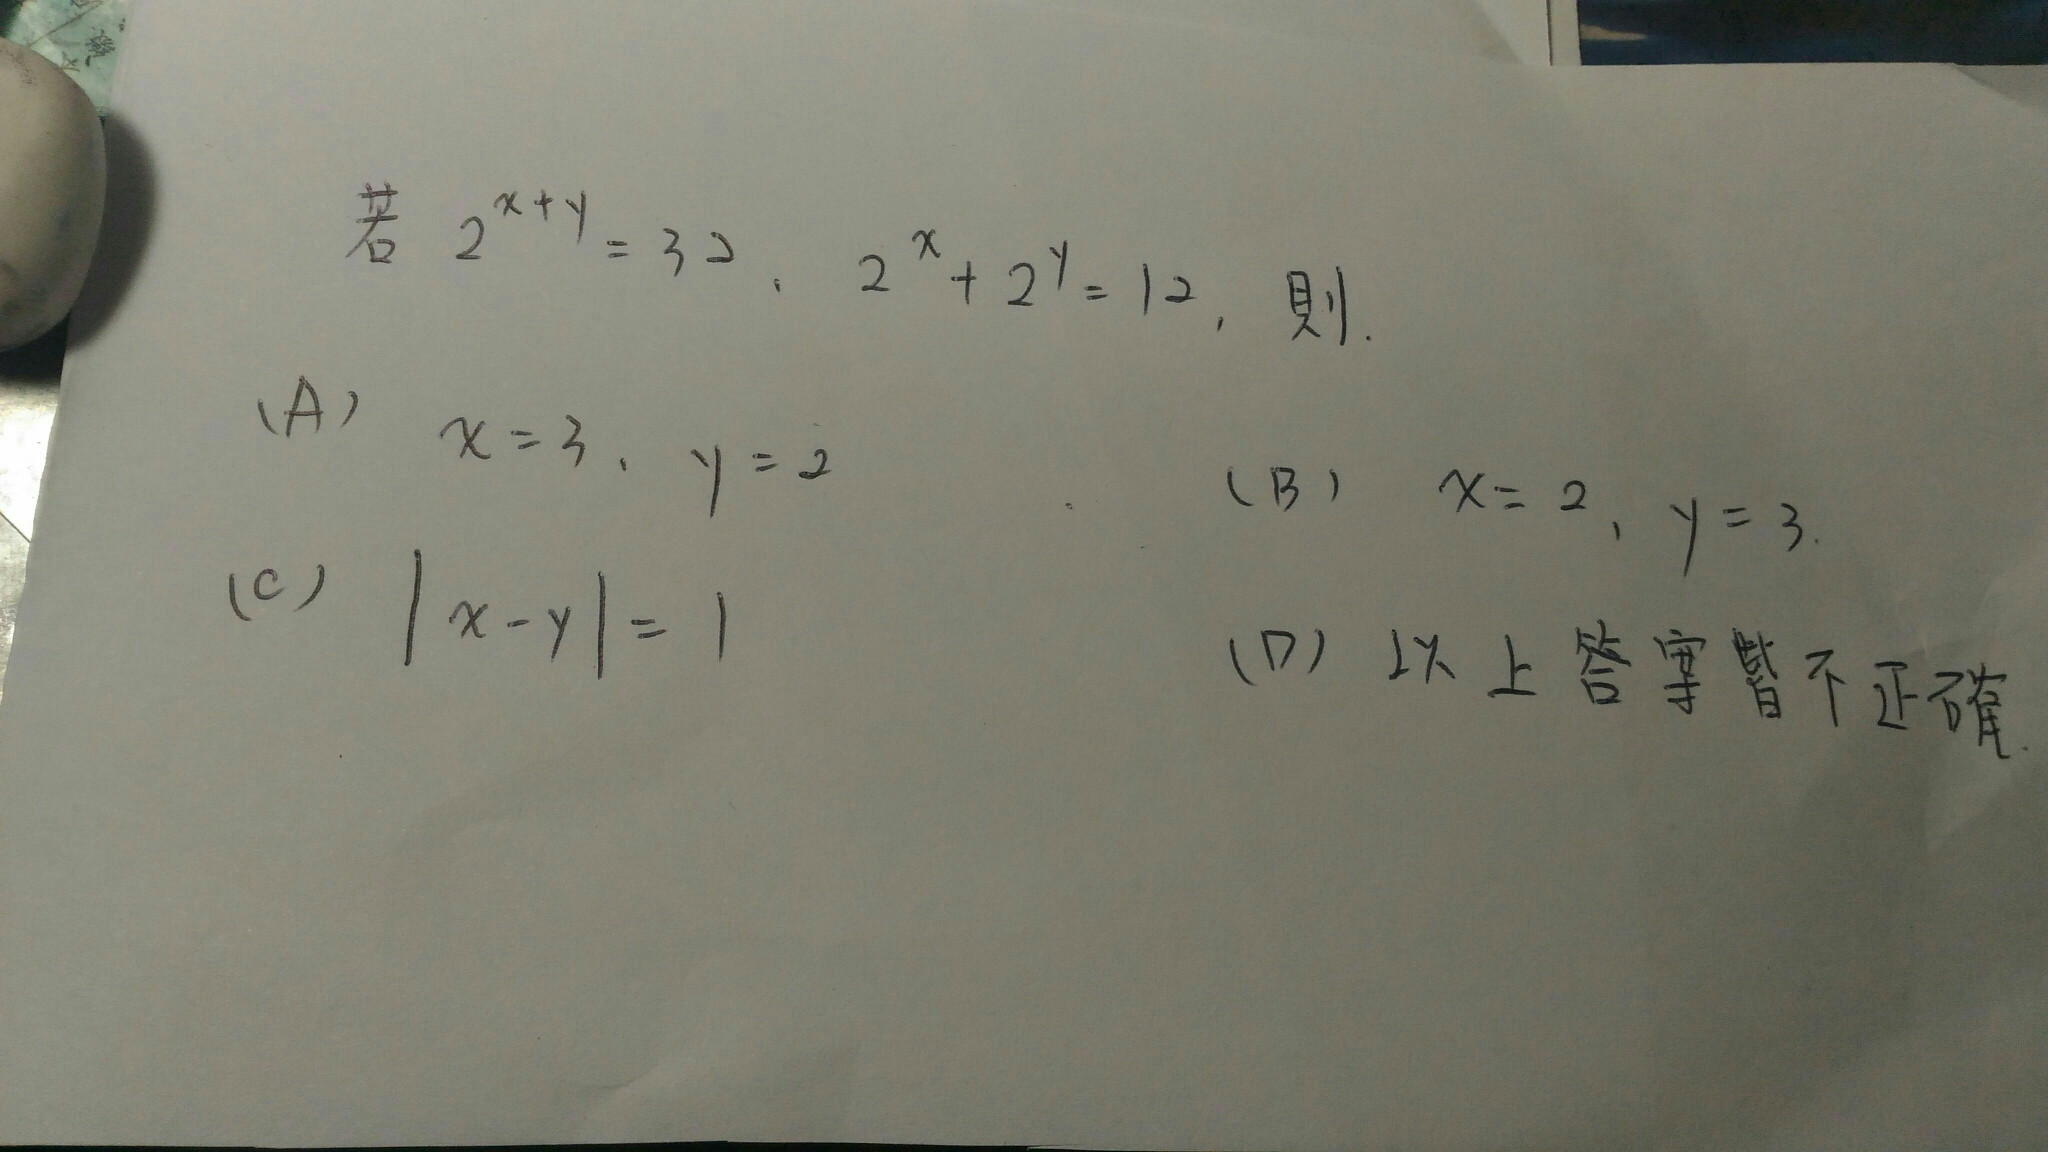 若 2^{x+y} = 32, 2^x + 2^y = 12, 則.
(A) x = 3, y = 2 (B) x = 2, y = 3.
(C) |x - y| = 1 (D) 以上答案皆不正確.